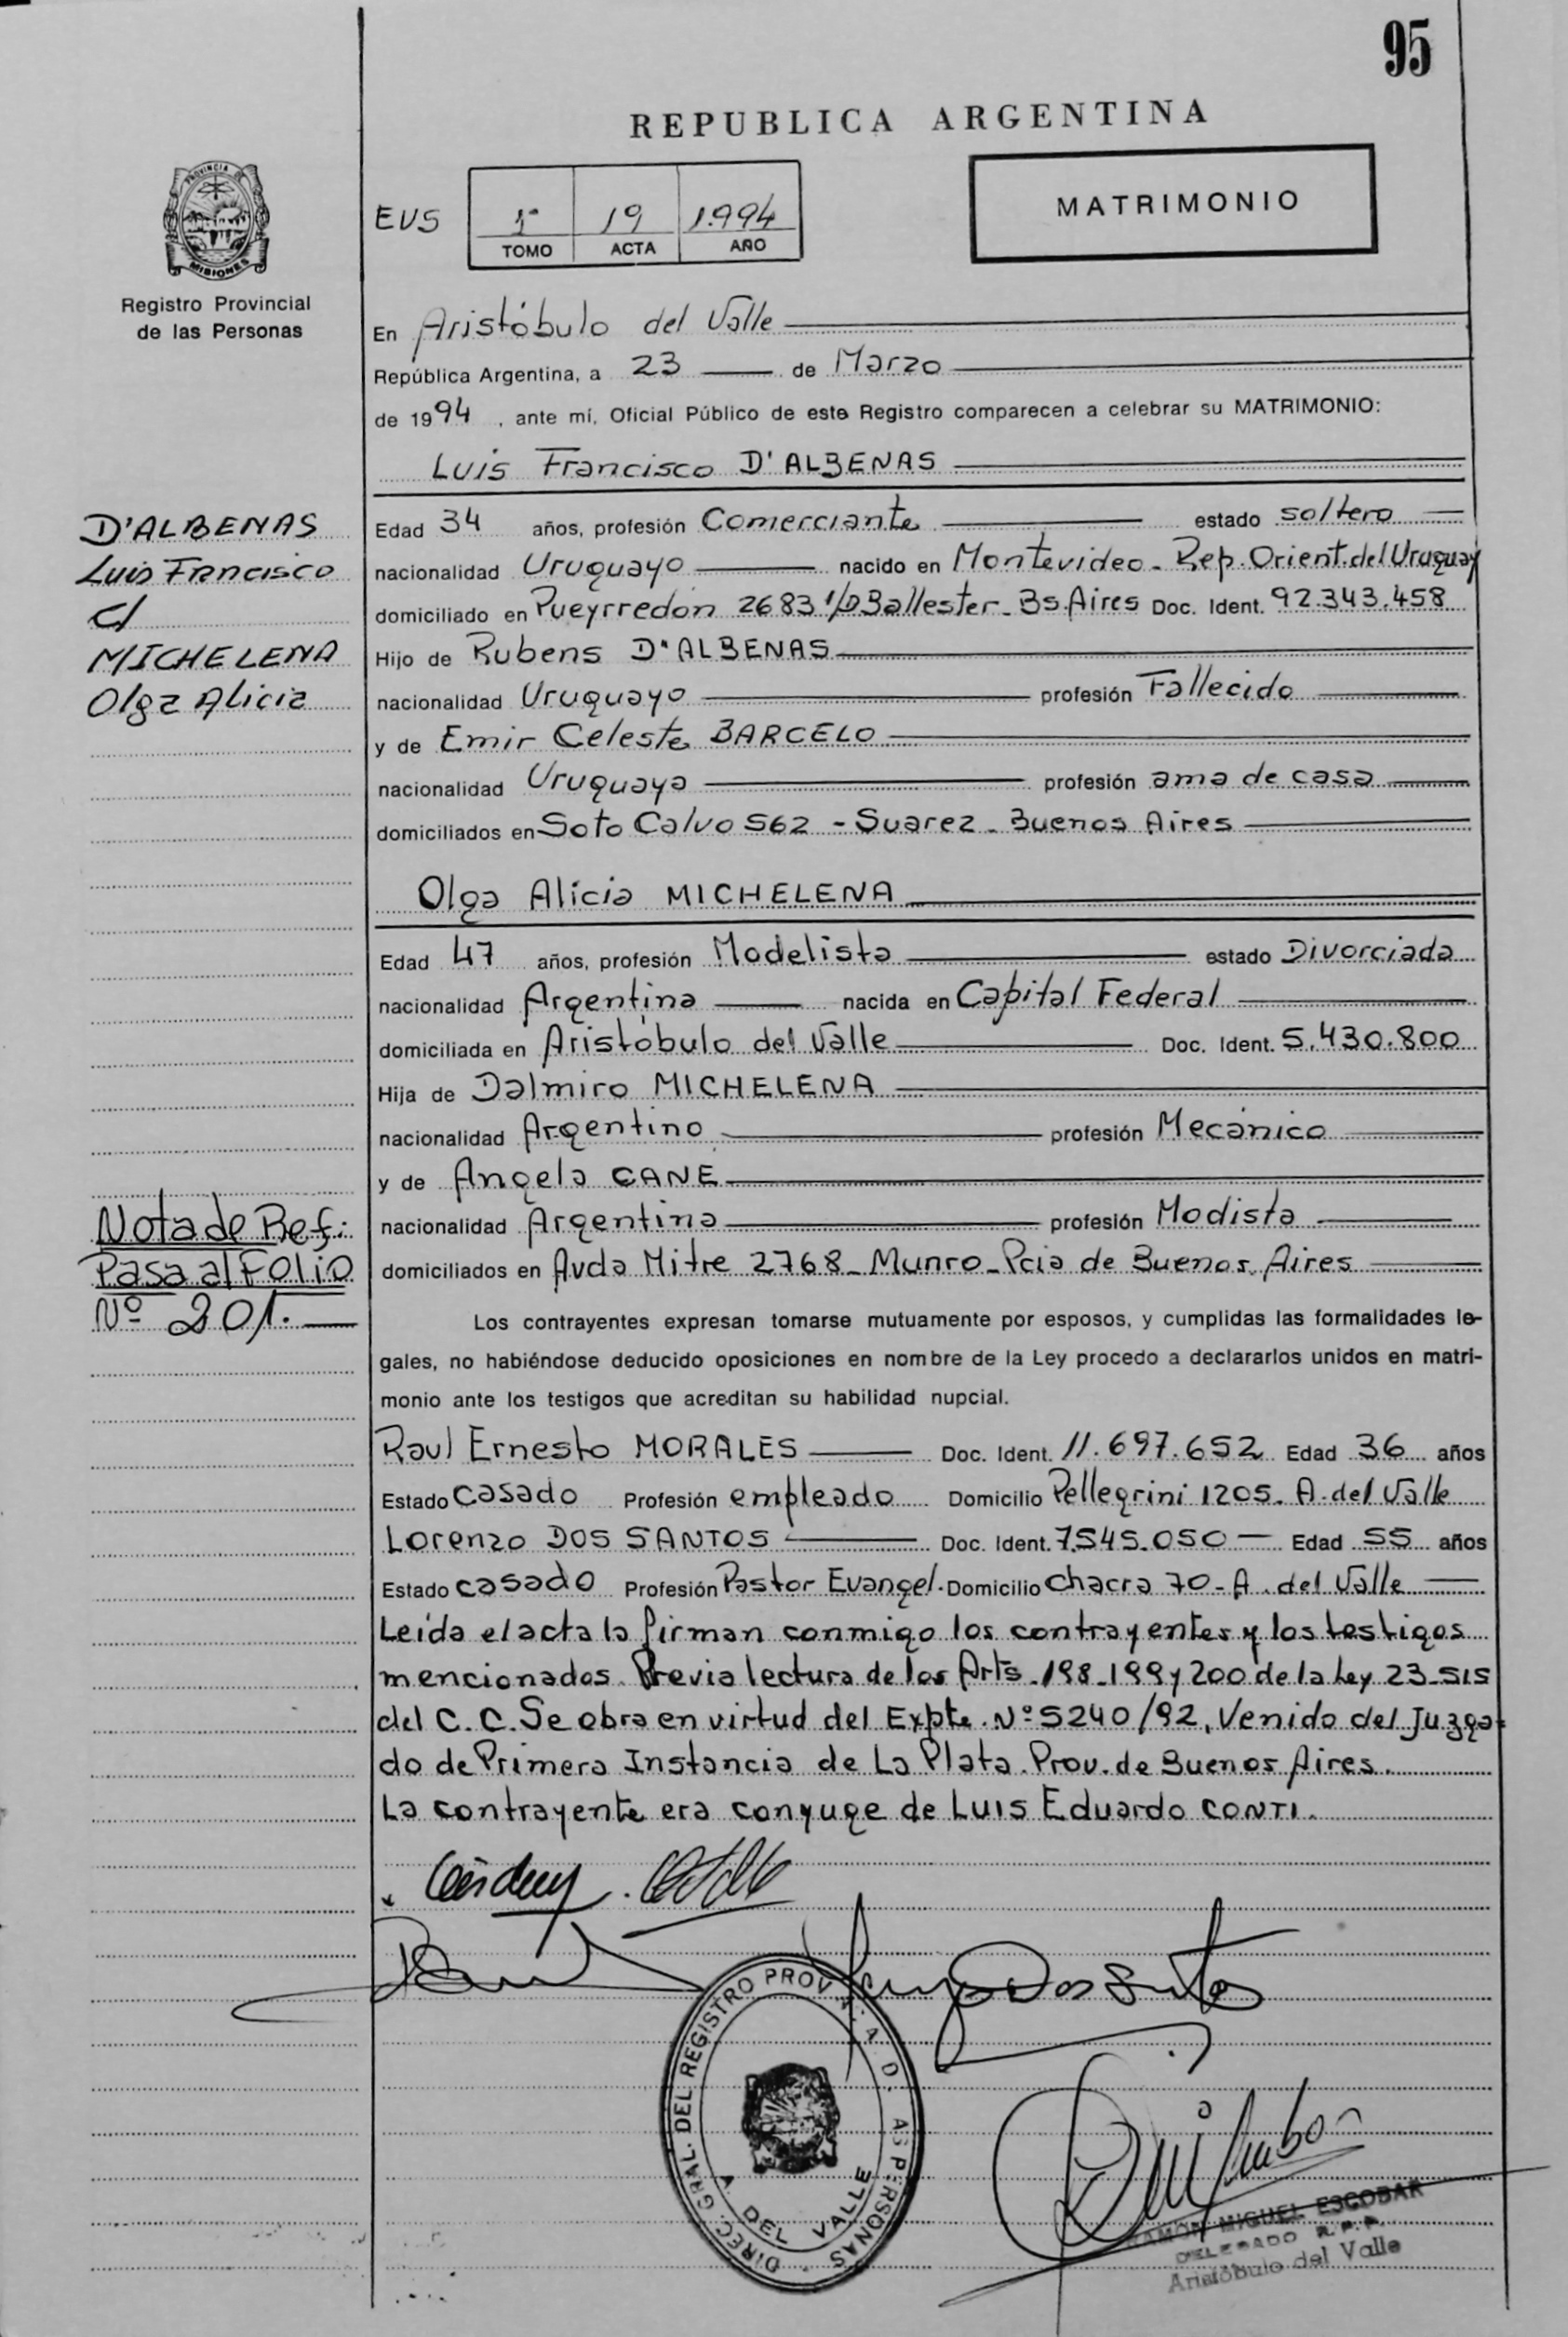 95
REPUBLICA ARGENTINA
PROVINCIA DE
MISIONES
Registro Provincial
de las Personas
EVS
1º 19 1.994
TOMO ACTA AÑO
MATRIMONIO
En Aristóbulo del Valle
República Argentina, a 23 de Marzo
de 1994, ante mí, Oficial Público de este Registro comparecen a celebrar su MATRIMONIO:
Luis Francisco D'ALBENAS
D'ALBENAS
Luis Francisco
c/
MICHELENA
Olga Alicia
Edad 34 años, profesión Comerciante estado soltero
nacionalidad Uruguayo nacido en Montevideo - Rep. Orient. del Uruguay
domiciliado en Pueyrredón 2683 Ballester - Bs. Aires Doc. Ident. 92.343.458
Hijo de Rubens D'ALBENAS
nacionalidad Uruguayo profesión Fallecido
y de Emir Celeste BARCELO
nacionalidad Uruguaya profesión ama de casa
domiciliados en Soto Calvo 562 - Suarez - Buenos Aires
Olga Alicia MICHELENA
Edad 47 años, profesión Modelista estado Divorciada
nacionalidad Argentina nacida en Capital Federal
domiciliada en Aristóbulo del Valle Doc. Ident. 5.430.800
Hija de Dalmiro MICHELENA
nacionalidad Argentino profesión Mecánico
y de Angela CANE
nacionalidad Argentina profesión Modista
domiciliados en Avda Mitre 2768 - Munro - Pcia de Buenos Aires
Nota de Ref:
Pasa al Folio
Nº 201.-
Los contrayentes expresan tomarse mutuamente por esposos, y cumplidas las formalidades le-
gales, no habiéndose deducido oposiciones en nombre de la Ley procedo a declararlos unidos en matri-
monio ante los testigos que acreditan su habilidad nupcial.
Raul Ernesto MORALES Doc. Ident. 11.697.652 Edad 36 años
Estado casado Profesión empleado Domicilio Pellegrini 1205. A. del Valle
Lorenzo DOS SANTOS Doc. Ident. 7.545.050 Edad 55 años
Estado casado Profesión Pastor Evangel. Domicilio Chacra 70 - A. del Valle
Leída el acta la firman conmigo los contrayentes y los testigos
mencionados. Previa lectura de los Arts. 198-199 y 200 de la Ley 23-515
del C. C. Se obra en virtud del Expte. Nº 5240/92, Venido del Juzga-
do de Primera Instancia de La Plata. Prov. de Buenos Aires.
La contrayente era conyuge de Luis Eduardo CONTI.
Dos Santos
DIREC. GRAL. DEL REGISTRO PROV. PERSONAS
A. DEL VALLE
RAMÓN MIGUEL ESCOBAR
DELEGADO R.P.P.
Aristóbulo del Valle